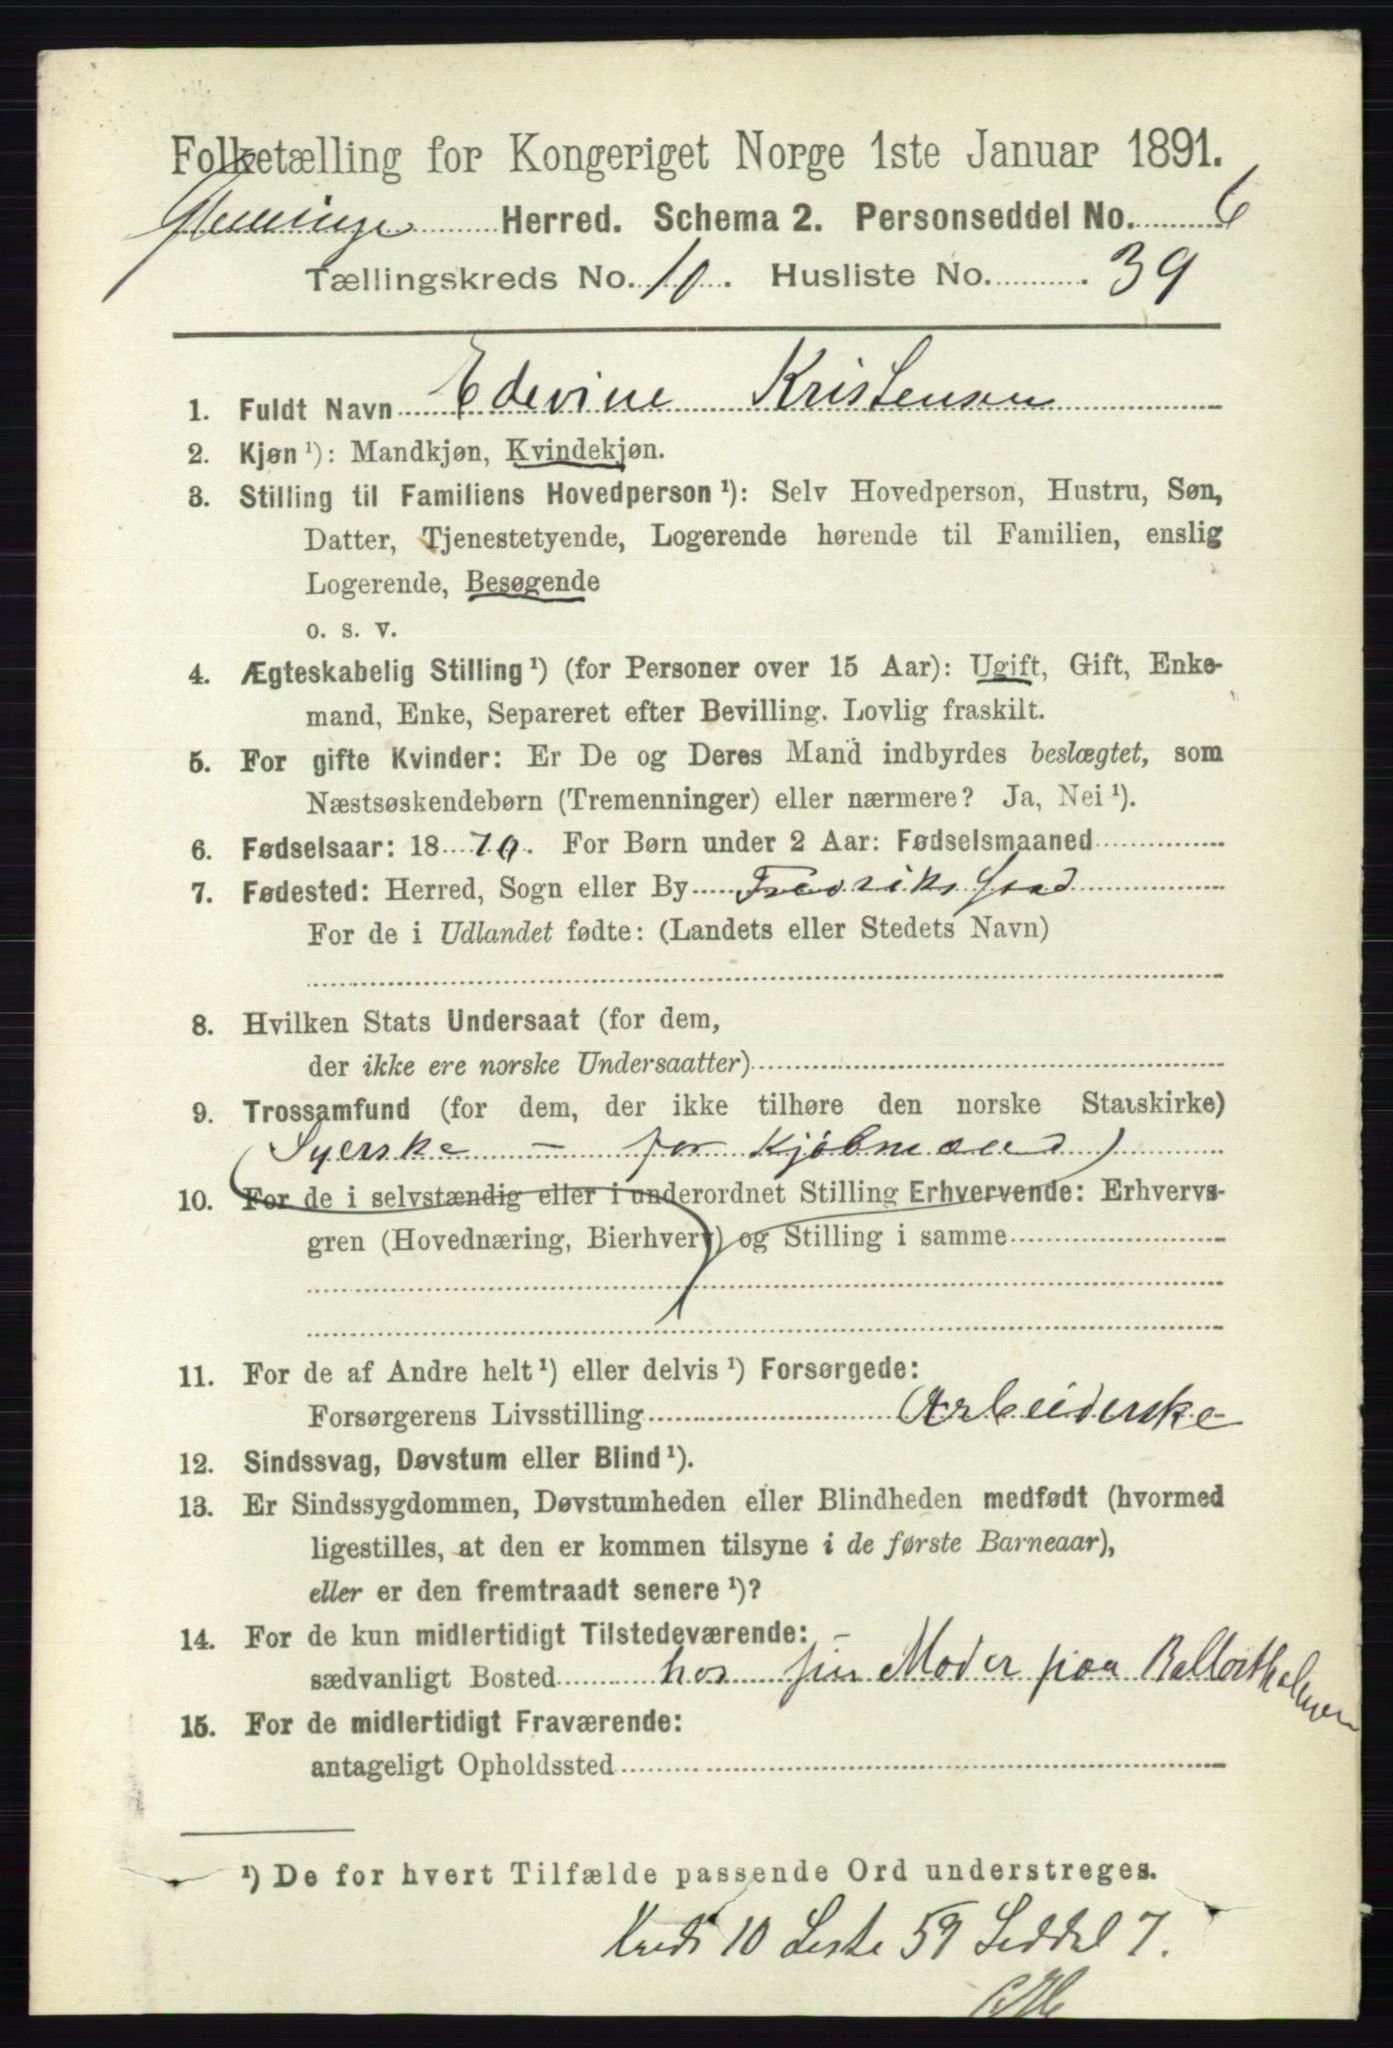 Folketælling for Kongeriget Norge 1ste Januar 1891.
Glemminge Herred. Schema 2. Personseddel No. 6
Tællingskreds No. 10. Husliste No. 39
1. Fuldt Navn Edevine Kristensen
2. Kjøn ¹): Mandkjøn, Kvindekjøn.
3. Stilling til Familiens Hovedperson ¹): Selv Hovedperson, Hustru, Søn,
Datter, Tjenestetyende, Logerende hørende til Familien, enslig
Logerende, Besøgende
o. s. v.
4. Ægteskabelig Stilling ¹) (for Personer over 15 Aar): Ugift, Gift, Enke-
mand, Enke, Separeret efter Bevilling. Lovlig fraskilt.
5. For gifte Kvinder: Er De og Deres Mand indbyrdes beslægtet, som
Næstsøskendebørn (Tremenninger) eller nærmere? Ja, Nei ¹).
6. Fødselsaar: 18 70. For Børn under 2 Aar: Fødselsmaaned
7. Fødested: Herred, Sogn eller By Fredriksstad
For de i Udlandet fødte: (Landets eller Stedets Navn)
8. Hvilken Stats Undersaat (for dem,
der ikke ere norske Undersaatter)
9. Trossamfund (for dem, der ikke tilhøre den norske Statskirke)
(Syerske – for Kjøbmænd)
10. For de i selvstændig eller i underordnet Stilling Erhvervende: Erhvervs-
gren (Hovednæring, Bierhverv) og Stilling i samme
11. For de af Andre helt ¹) eller delvis ¹) Forsørgede:
Forsørgerens Livsstilling Arbeiderske
12. Sindssvag, Døvstum eller Blind ¹).
13. Er Sindssygdommen, Døvstumheden eller Blindheden medfødt (hvormed
ligestilles, at den er kommen tilsyne i de første Barneaar),
eller er den fremtraadt senere ¹)?
14. For de kun midlertidigt Tilstedeværende:
sædvanligt Bosted hos sin Moder paa
15. For de midlertidigt Fraværende:
antageligt Opholdssted
¹) De for hvert Tilfælde passende Ord understreges.
Kreds 10 Liste 59 Seddel 7.